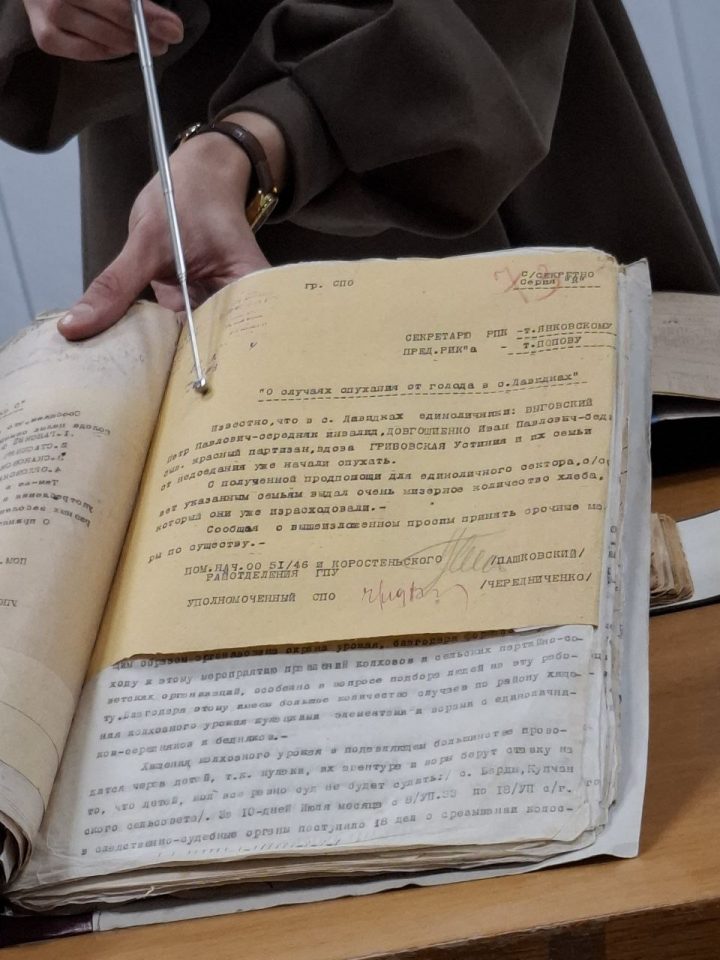 гр. СПО
С/СЕКРЕТНО
Серия "К"
73
СЕКРЕТАРЮ РПК -т.ЯНКОВСКОМУ
ПРЕД.РИК"а - т.ПОПОВУ
"О случаях опухания от голода в с.Давидках"
Известно,что в с. Давидках единоличники: ВЫГОВСКИЙ
Петр Павлович-середняк инвалид,ДОВГОШИЕНКО Иван Павлович-сед
быв. красный партизан,вдова ГРИБОВСКАЯ Устиния и их семьи
от недоедания уже начали опухать.
С полученной продпомощи для единоличного сектора,с/со
вет указанным семьям выдал очень мизерное количество хлеба,
который они уже израсходовали.-
Сообщая о вышеизложенном просим принять срочные ме
ры по существу.-
ПОМ.НАЧ.ОО 51/46 И КОРОСТЕНЬСКОГО /ПАШКОВСКИЙ/
РАЙОТДЕЛЕНИЯ ГПУ
УПОЛНОМОЧЕННЫЙ СПО /ЧЕРЕДНИЧЕНКО/
щим образом организована охрана урожая, благодаря
ходу к этому мероприятию правлений колхозов и сельских партийно-со-
ветских организаций, особенно в вопросе подбора людей на эту рабо-
ту.Благодаря этому имеем большое количество случаев по району хище-
ния колхозного урожая кулацкими элементами и ворами с единолични-
ков-середняков и бедняков.-
Хищения колхозного урожая в подавляющем большинстве прово-
дятся через детей, т.к. кулаки, их агентура и воры берут ставку на
то, что детей, мол все равно суд не будет судить:/ с. Барды,Купчан
ского сельсовета/. За 10-дней Июля месяца с 8/УП.33 по 18/УП с/г.
в следственно-судебные органы поступило 18 дел о срезывании колос-